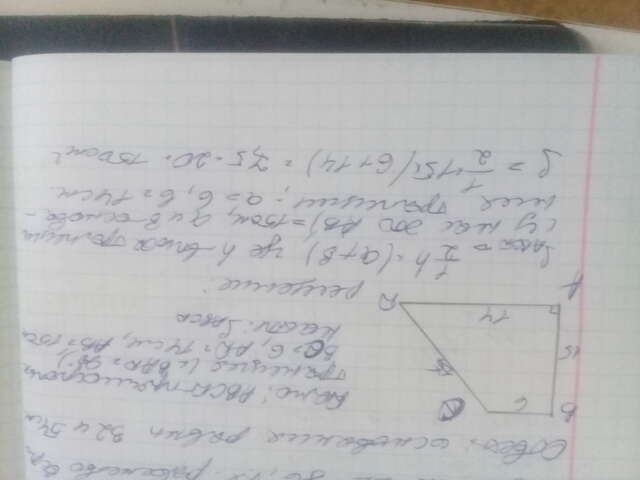 Ответ: основания равны 32 и 54см
Дано: ABCD-
трапеция (∠BAD = 90°)
BC = 6, AD = 14 см, AB = 15см
Найти: SABCD
B 6 C
15
14
A D
Решение:
SABCD = 1/2 h · (a+b) где h-высота трапеции
(у нас это AB) = 15см, a и b основа-
ния трапеции; a = 6, b = 14 см.
S = 1/2 · 15 · (6+14) = 7,5 · 20 = 150см²